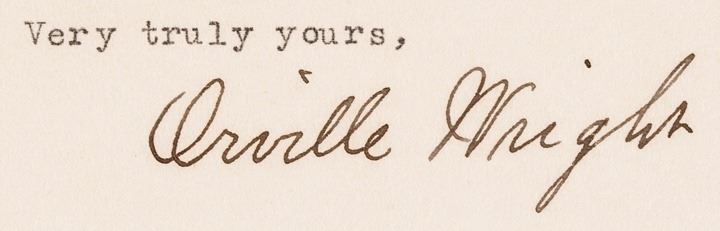 Very truly yours,
Orville Wright